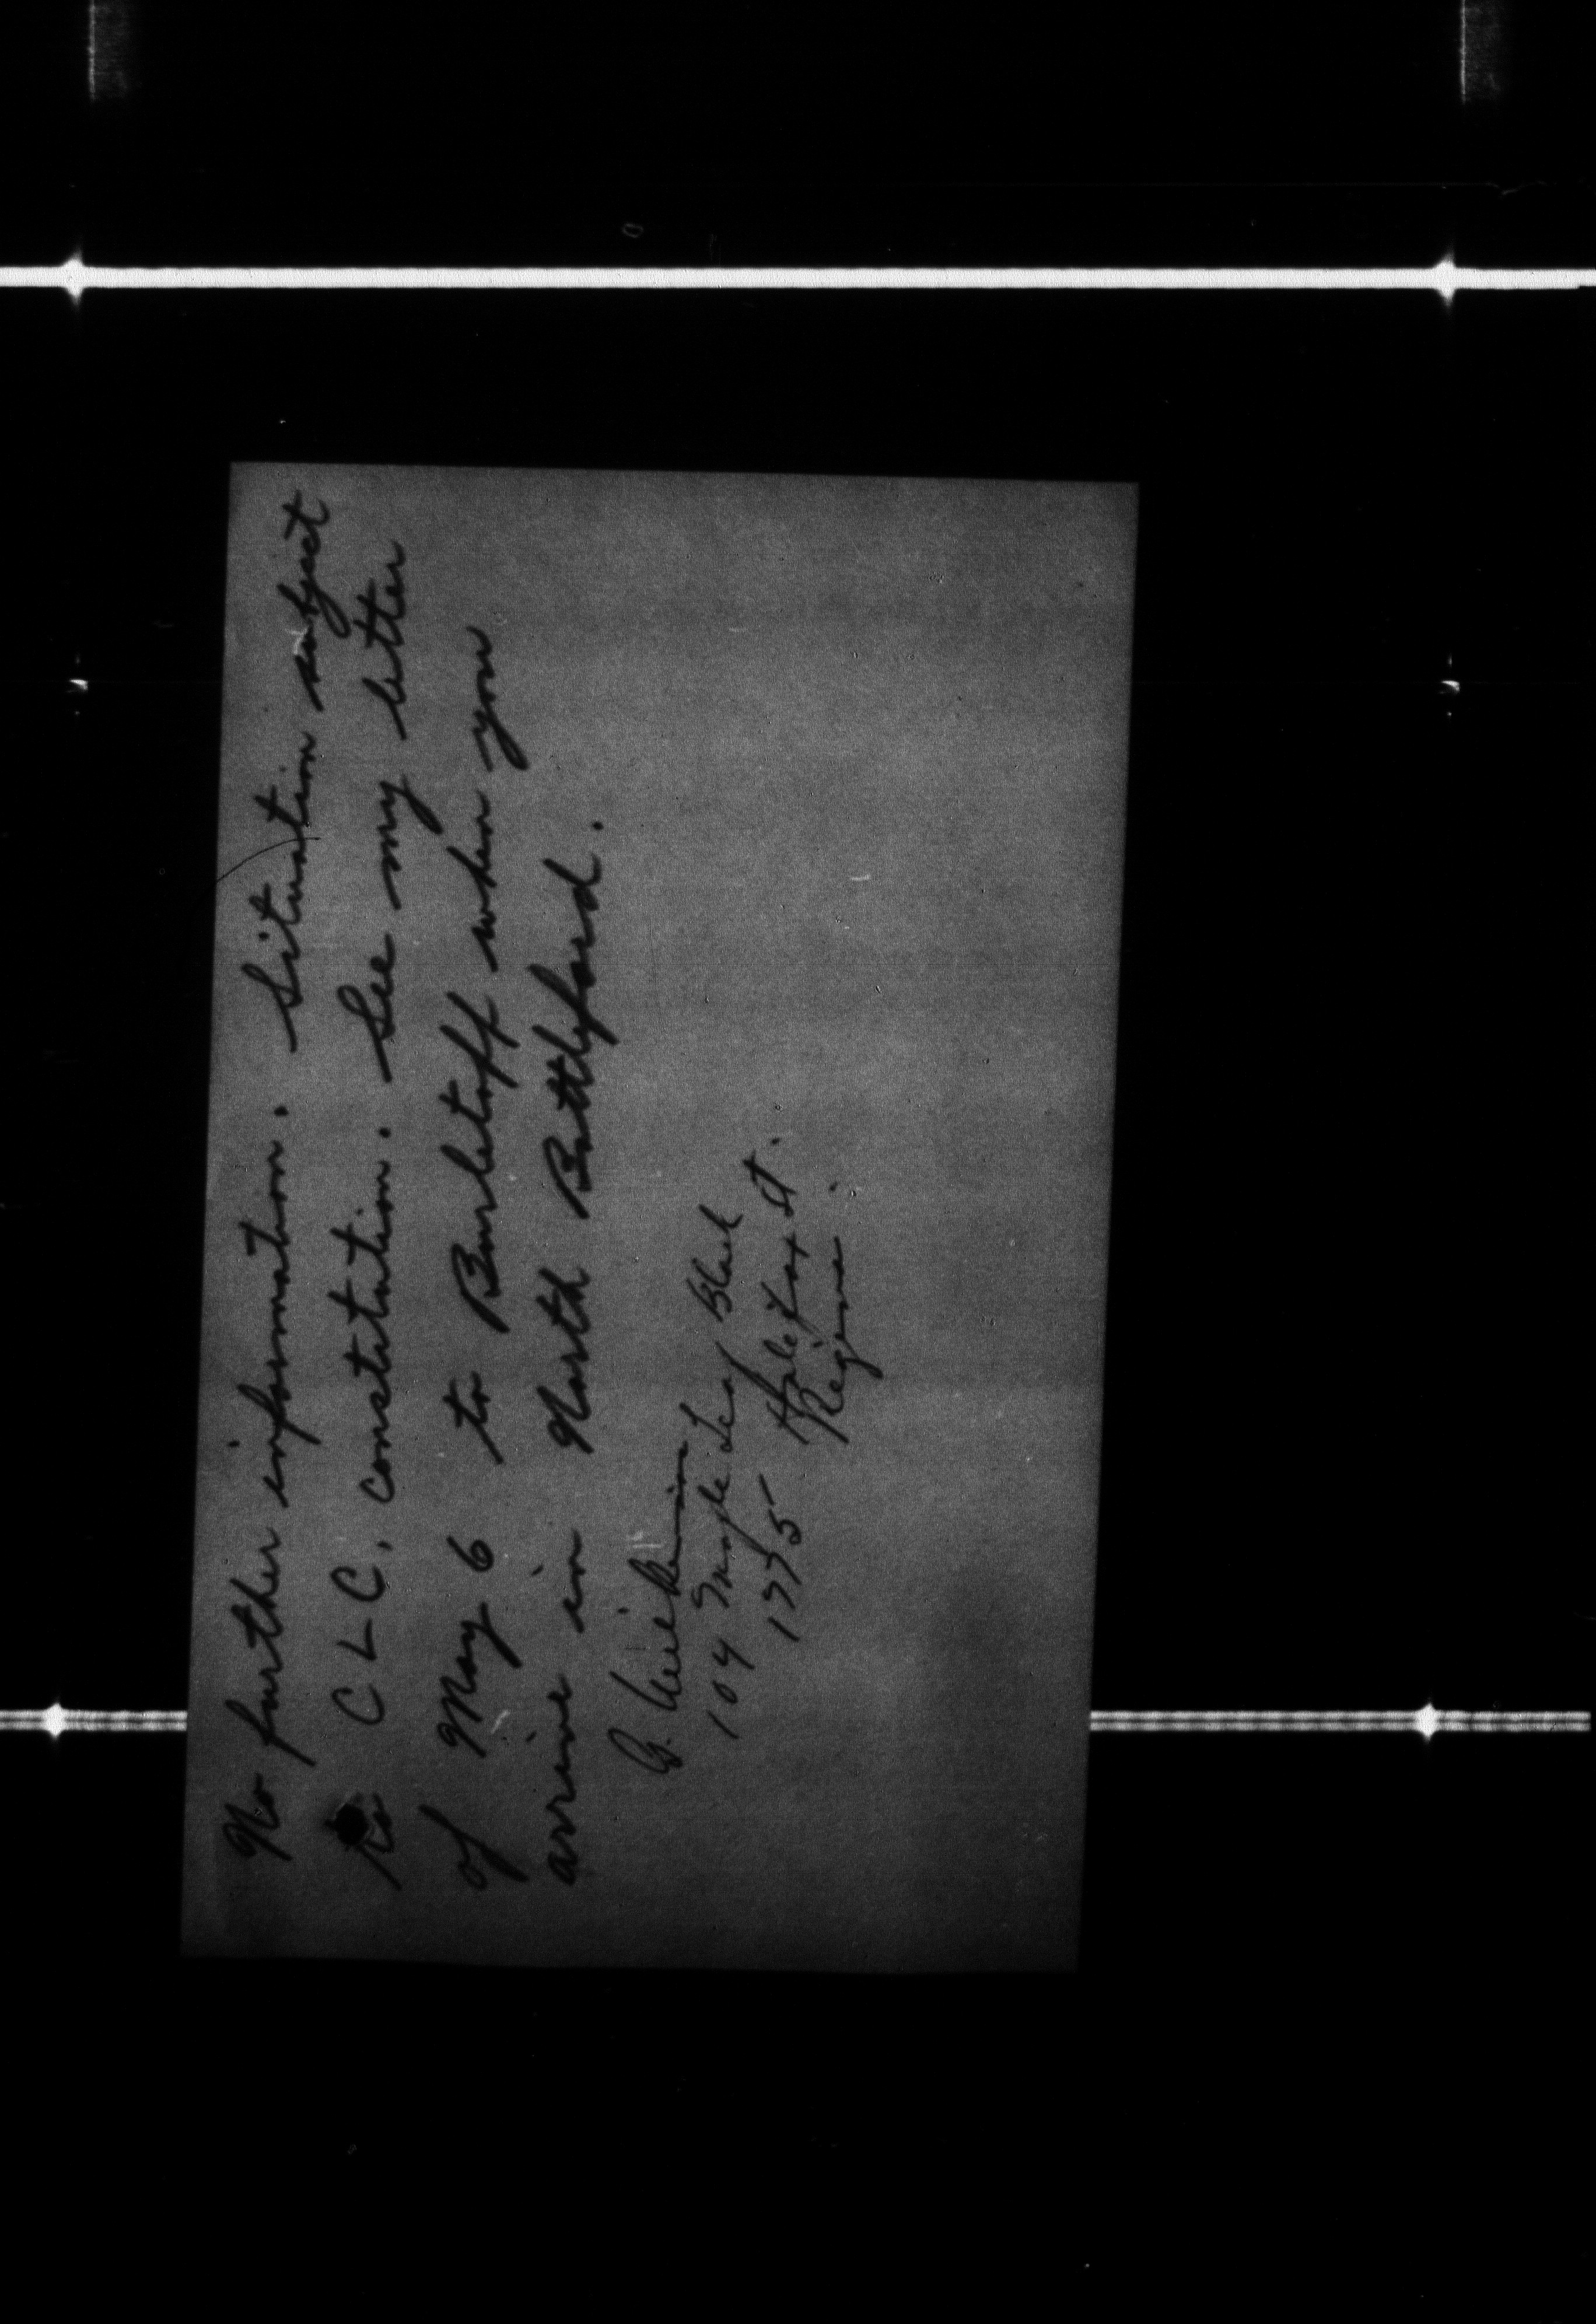 No further information. Situation subject
to CLC. constitution. See my letter
of May 6 to Barletoff when you
arrive in North Battleford.
G.
104 Maple Leaf Block
1775 Halifax St.
Regina.